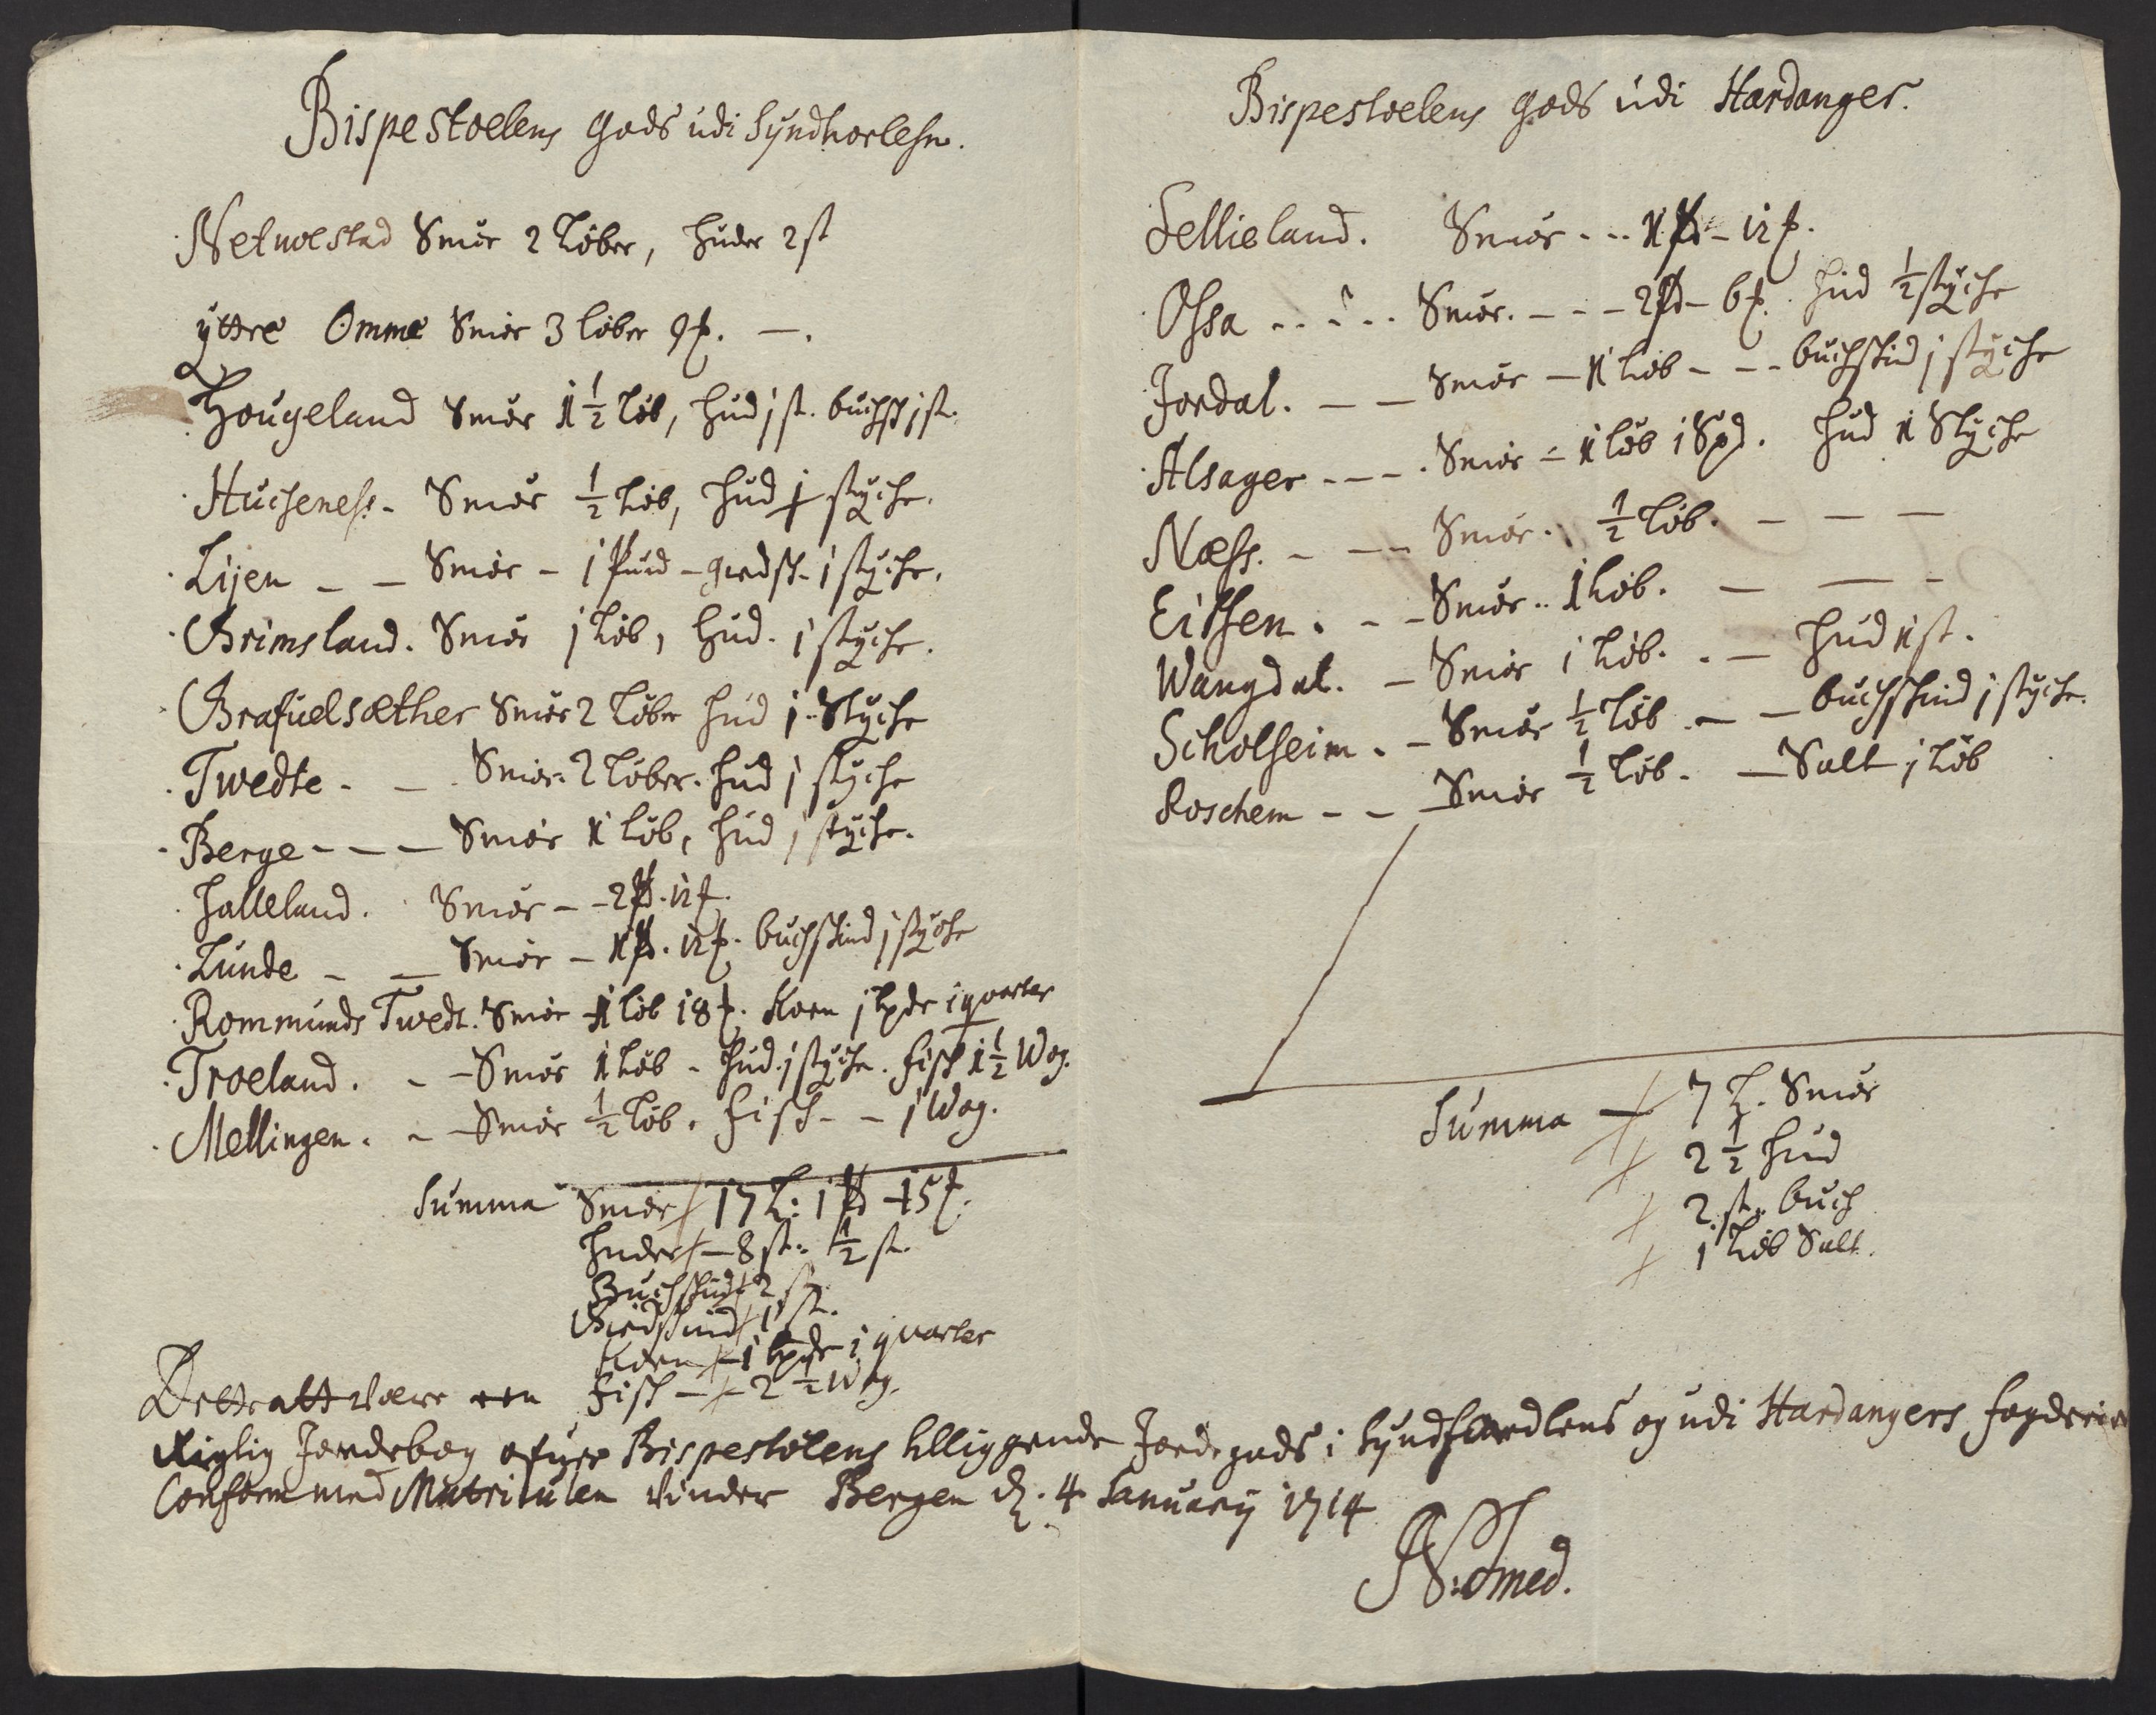 Bispestoelens Gods udi Syndhorlehn.
Netwestad Smör 2 Löber, huder 2 st
ÿttre Omme Smör 3 löber 9 ℔. —.
Hougeland Smör 1 ½ Löb, hud j st. buchsk j st.
Hucheness - Smör ½ Löb, hud j stÿche.
Lijen - - Smör - j Pund - giedsk - j stÿche.
Grimsland. Smör j Löb, hud. j stÿche.
Grafuelsæther Smör 2 Löber hud j Stÿche
Twedte - - Smör 2 Löber. hud j stÿche
Berge - - - Smör 1 Löb, hud j stÿche.
Halleland. Smör - - 2 Pd. 12 ℔.
Lunde - - Smör - 1 Pd. 12 ℔. buchskind j stÿche
Rommunds Twedt. Smör 1 löb 18 ℔. Korn j tpde i qvarter
Troeland. - - Smör 1 Löb - hud. j stÿche. fisk 1 ½ Wog.
Mellingen. - - Smör ½ Löb. fisk - - j Wog.
Summa Smör 17 L: 1 Pd 15 ℔.
huder - 8 st. ½ st.
Buchskind 2 st.
Giedskind 1 st.
Korn - 1 tpde i qvarter
fisk - 2 ½ Wog.
Bispestoelens Gods udi Hardanger.
Sellieland. Smör - - - 1 Pd - 12 ℔.
Ossa - - - - Smör. - - - 2 Pd - 6 ℔. hud ½ stÿche
Jordal. - - Smör - 1 Löb - - - buchskind j stÿche
Alsager - - - . Smör - 1 löb 1 Spd. hud 1 Stÿche
Næss. - - - Smör. ½ Löb. - - -
Eitthen. - - Smör.. 1 Löb. - - -
Wangdal. - Smör 1 Löb. - - hud 1 st.
Scholheim. - Smör ½ Löb - - buchskind j stÿche.
Roschem - - Smör ½ Löb - - Salt j Löb
Summa - 7 L. Smör
2 ½ hud
2 st. buch
1 Löb Salt.
Dette att være een
Rigtig Jordebog ofuer Bispestolens tilliggende Jordegods i Syndhordlens og udi Hardangers fogderier
Conform med Matriculen Vinder Bergen d. 4 Januarij 1714
N: Smed.